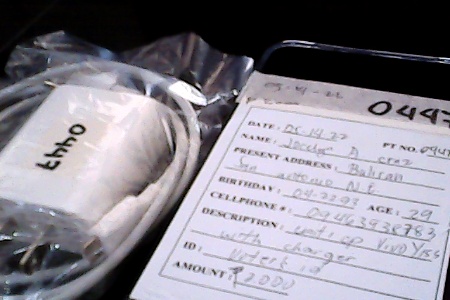 0447
05-9-22
0447
DATE: 05.14.22 PT NO. 0447
NAME: Jocelyn A cruz
PRESENT ADDRESS: Balican
San antonio N.E
BIRTHDAY: 04-22-93 AGE: 29
CELLPHONE #: 09463938783
DESCRIPTION: unit: cp vivo Y15s
with charger
ID: Voter's id
AMOUNT: ₱2000